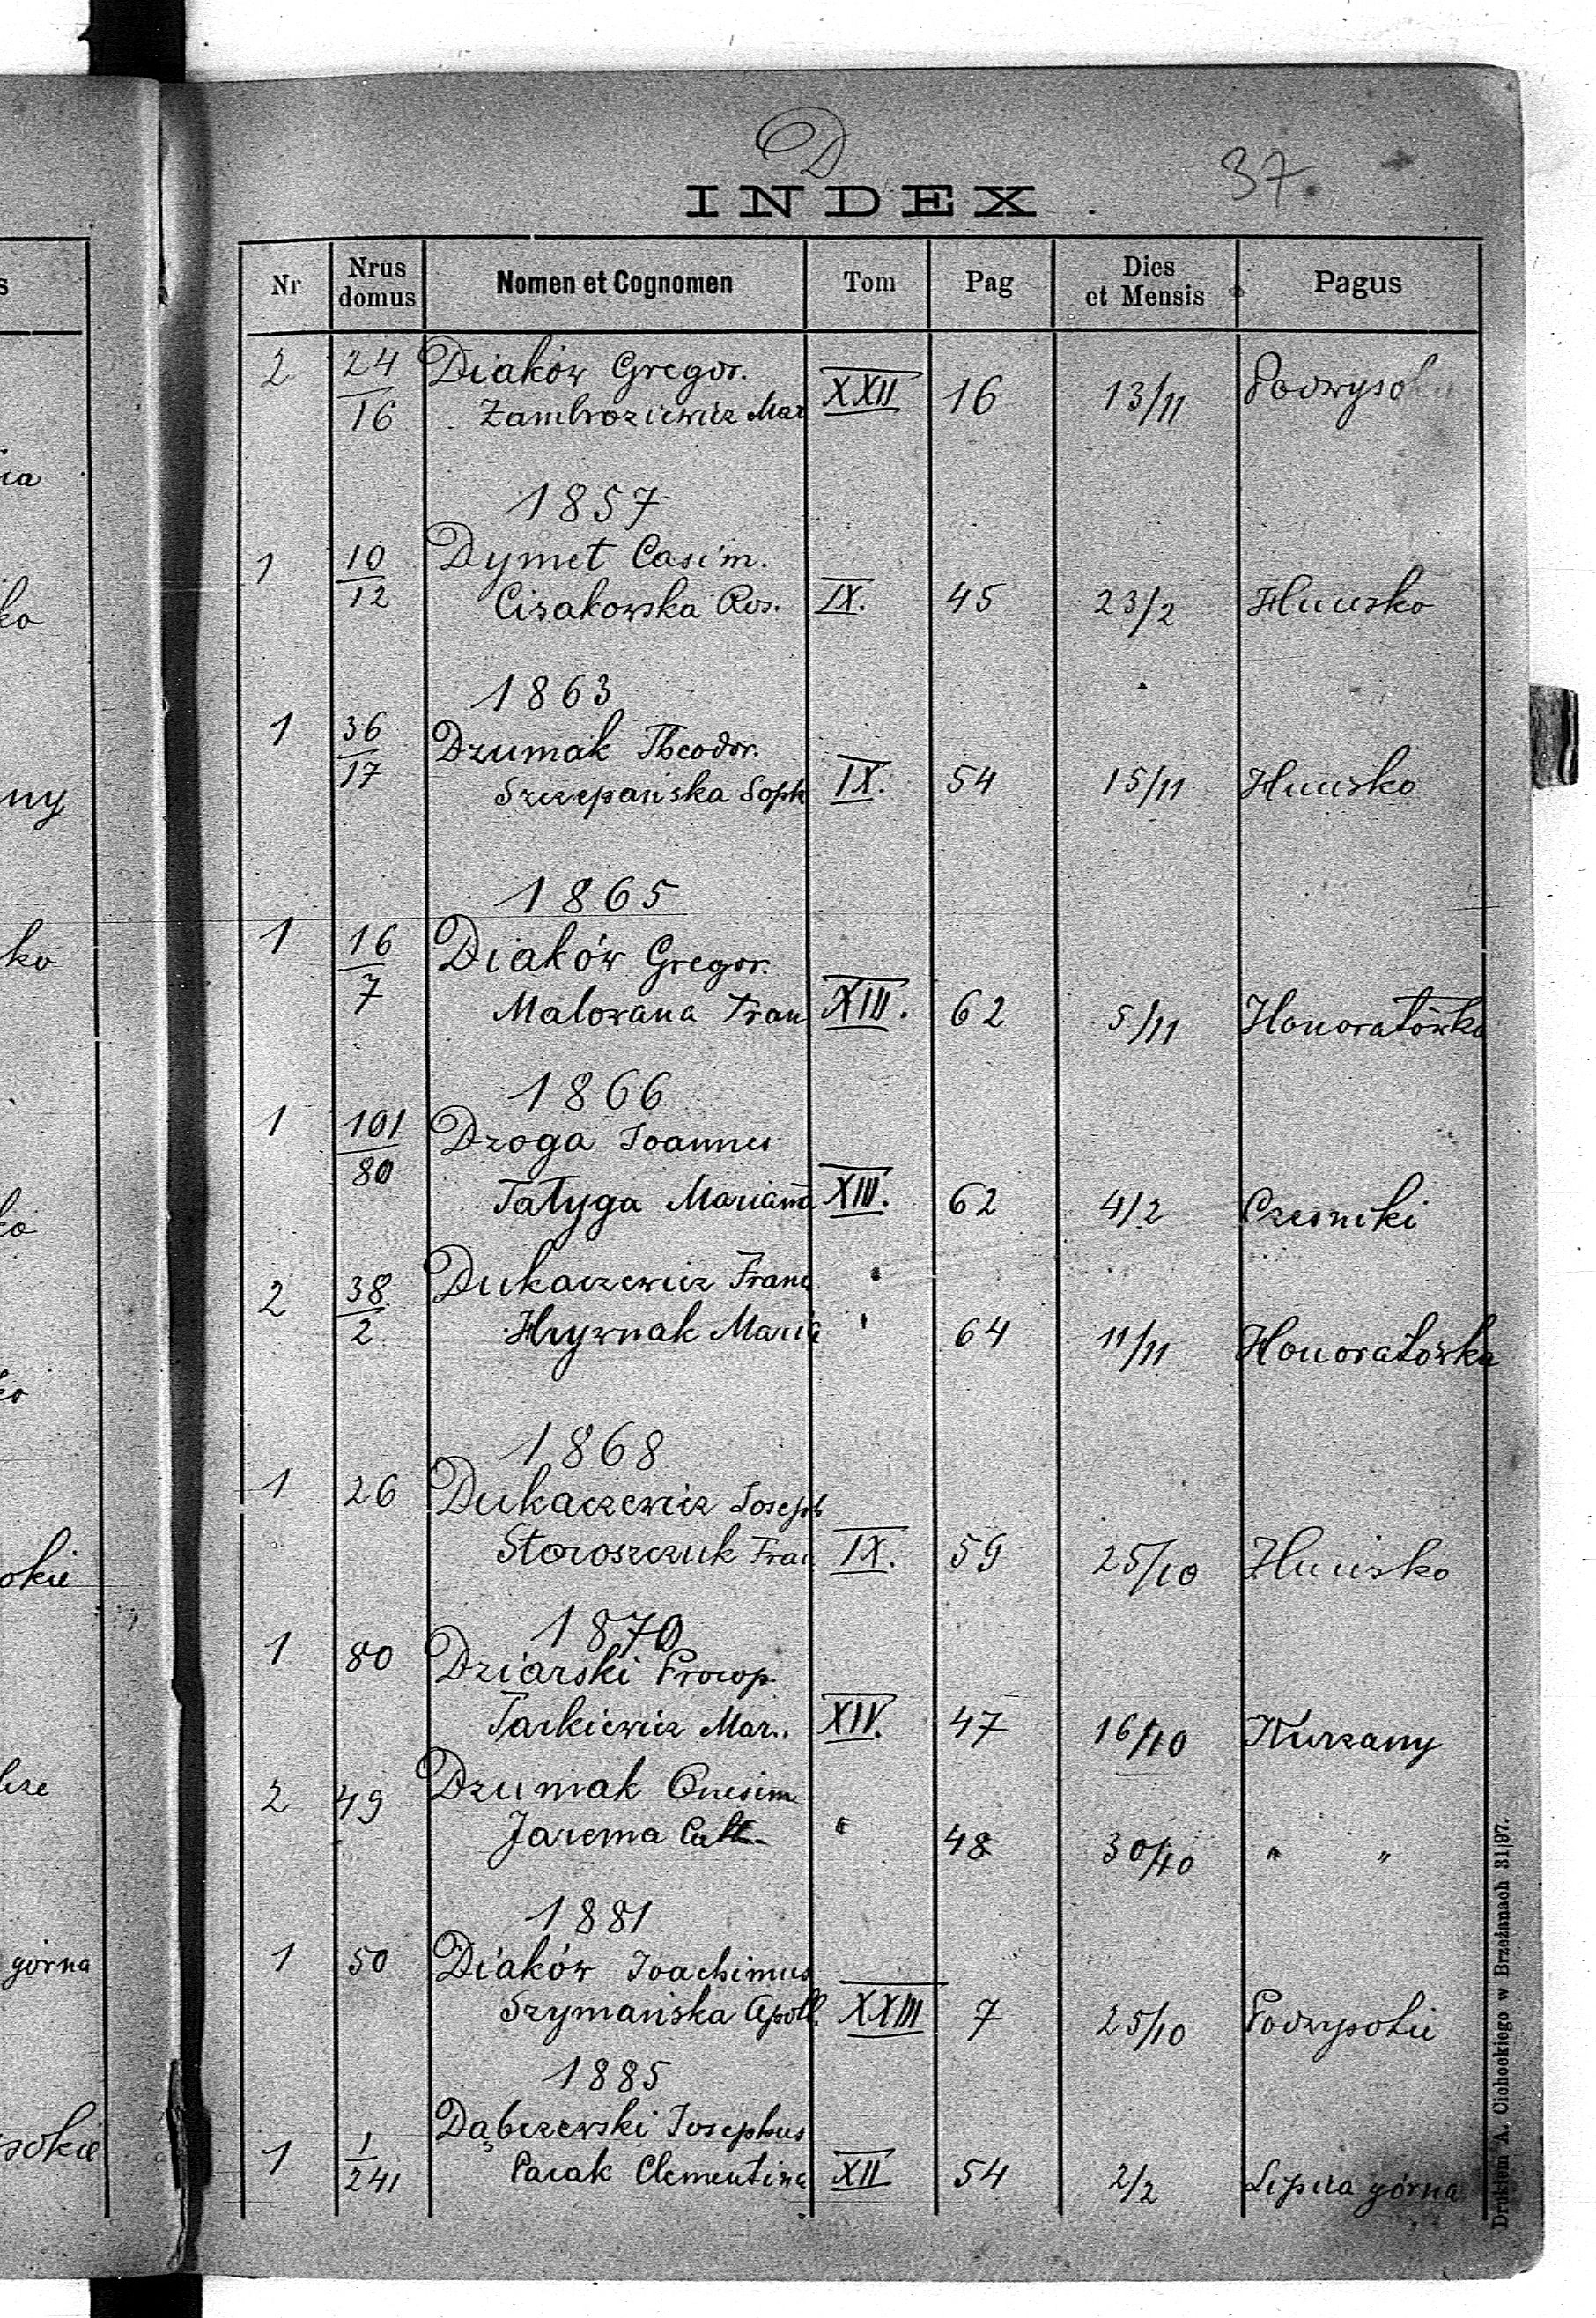 D
37.
INDEX
Nr Nrus domus Nomen et Cognomen Tom Pag Dies et Mensis Pagus
2 24/16 Diaków Gregor.
Zambroziewicz Mar XXII 16 13/11 Podwyso
1857
1 10/12 Dymet Casim.
Cisakowska Ros. IX. 45 23/2 Hucisko
1863
1 36/17 Dzumak Theodor.
Szczepańska Soph IX. 54 15/11 Hucisko
1865
1 16/7 Diaków Gregor.
Malowana Fran XIII. 62 5/11 Honoratówka
1866
1 101/80 Dzoga Joannes
Tatyga Marianna XIII. 62 4/2 Czesniki
2 38/2 Dukaczewicz Franc "
Hrywnak Maria " 64 11/11 Honoratówka
1868
1 26 Dukaczewicz Joseph
Storoszczuk Fran IX. 59 25/10 Hucisko
1870
1 80 Dziarski Procop.
Tarkiewicz Mar.. XIV. 47 16/10 Kurzany
2 49 Dzumak Onesim
Jarema Cath. " 48 30/10 " "
1881
1 50 Diaków Joachimus
Szymańska Apoll. XXIII 7 25/10 Podwysokie
1885
Dąbczewski Josephus
1 1/241 Pacak Clementina XII 54 2/2 Lipica górna
Drukiem A. Cichockiego w Brzeżanach 31|97.
ia
ko
ny
ko
ko
okie
górna
sokie